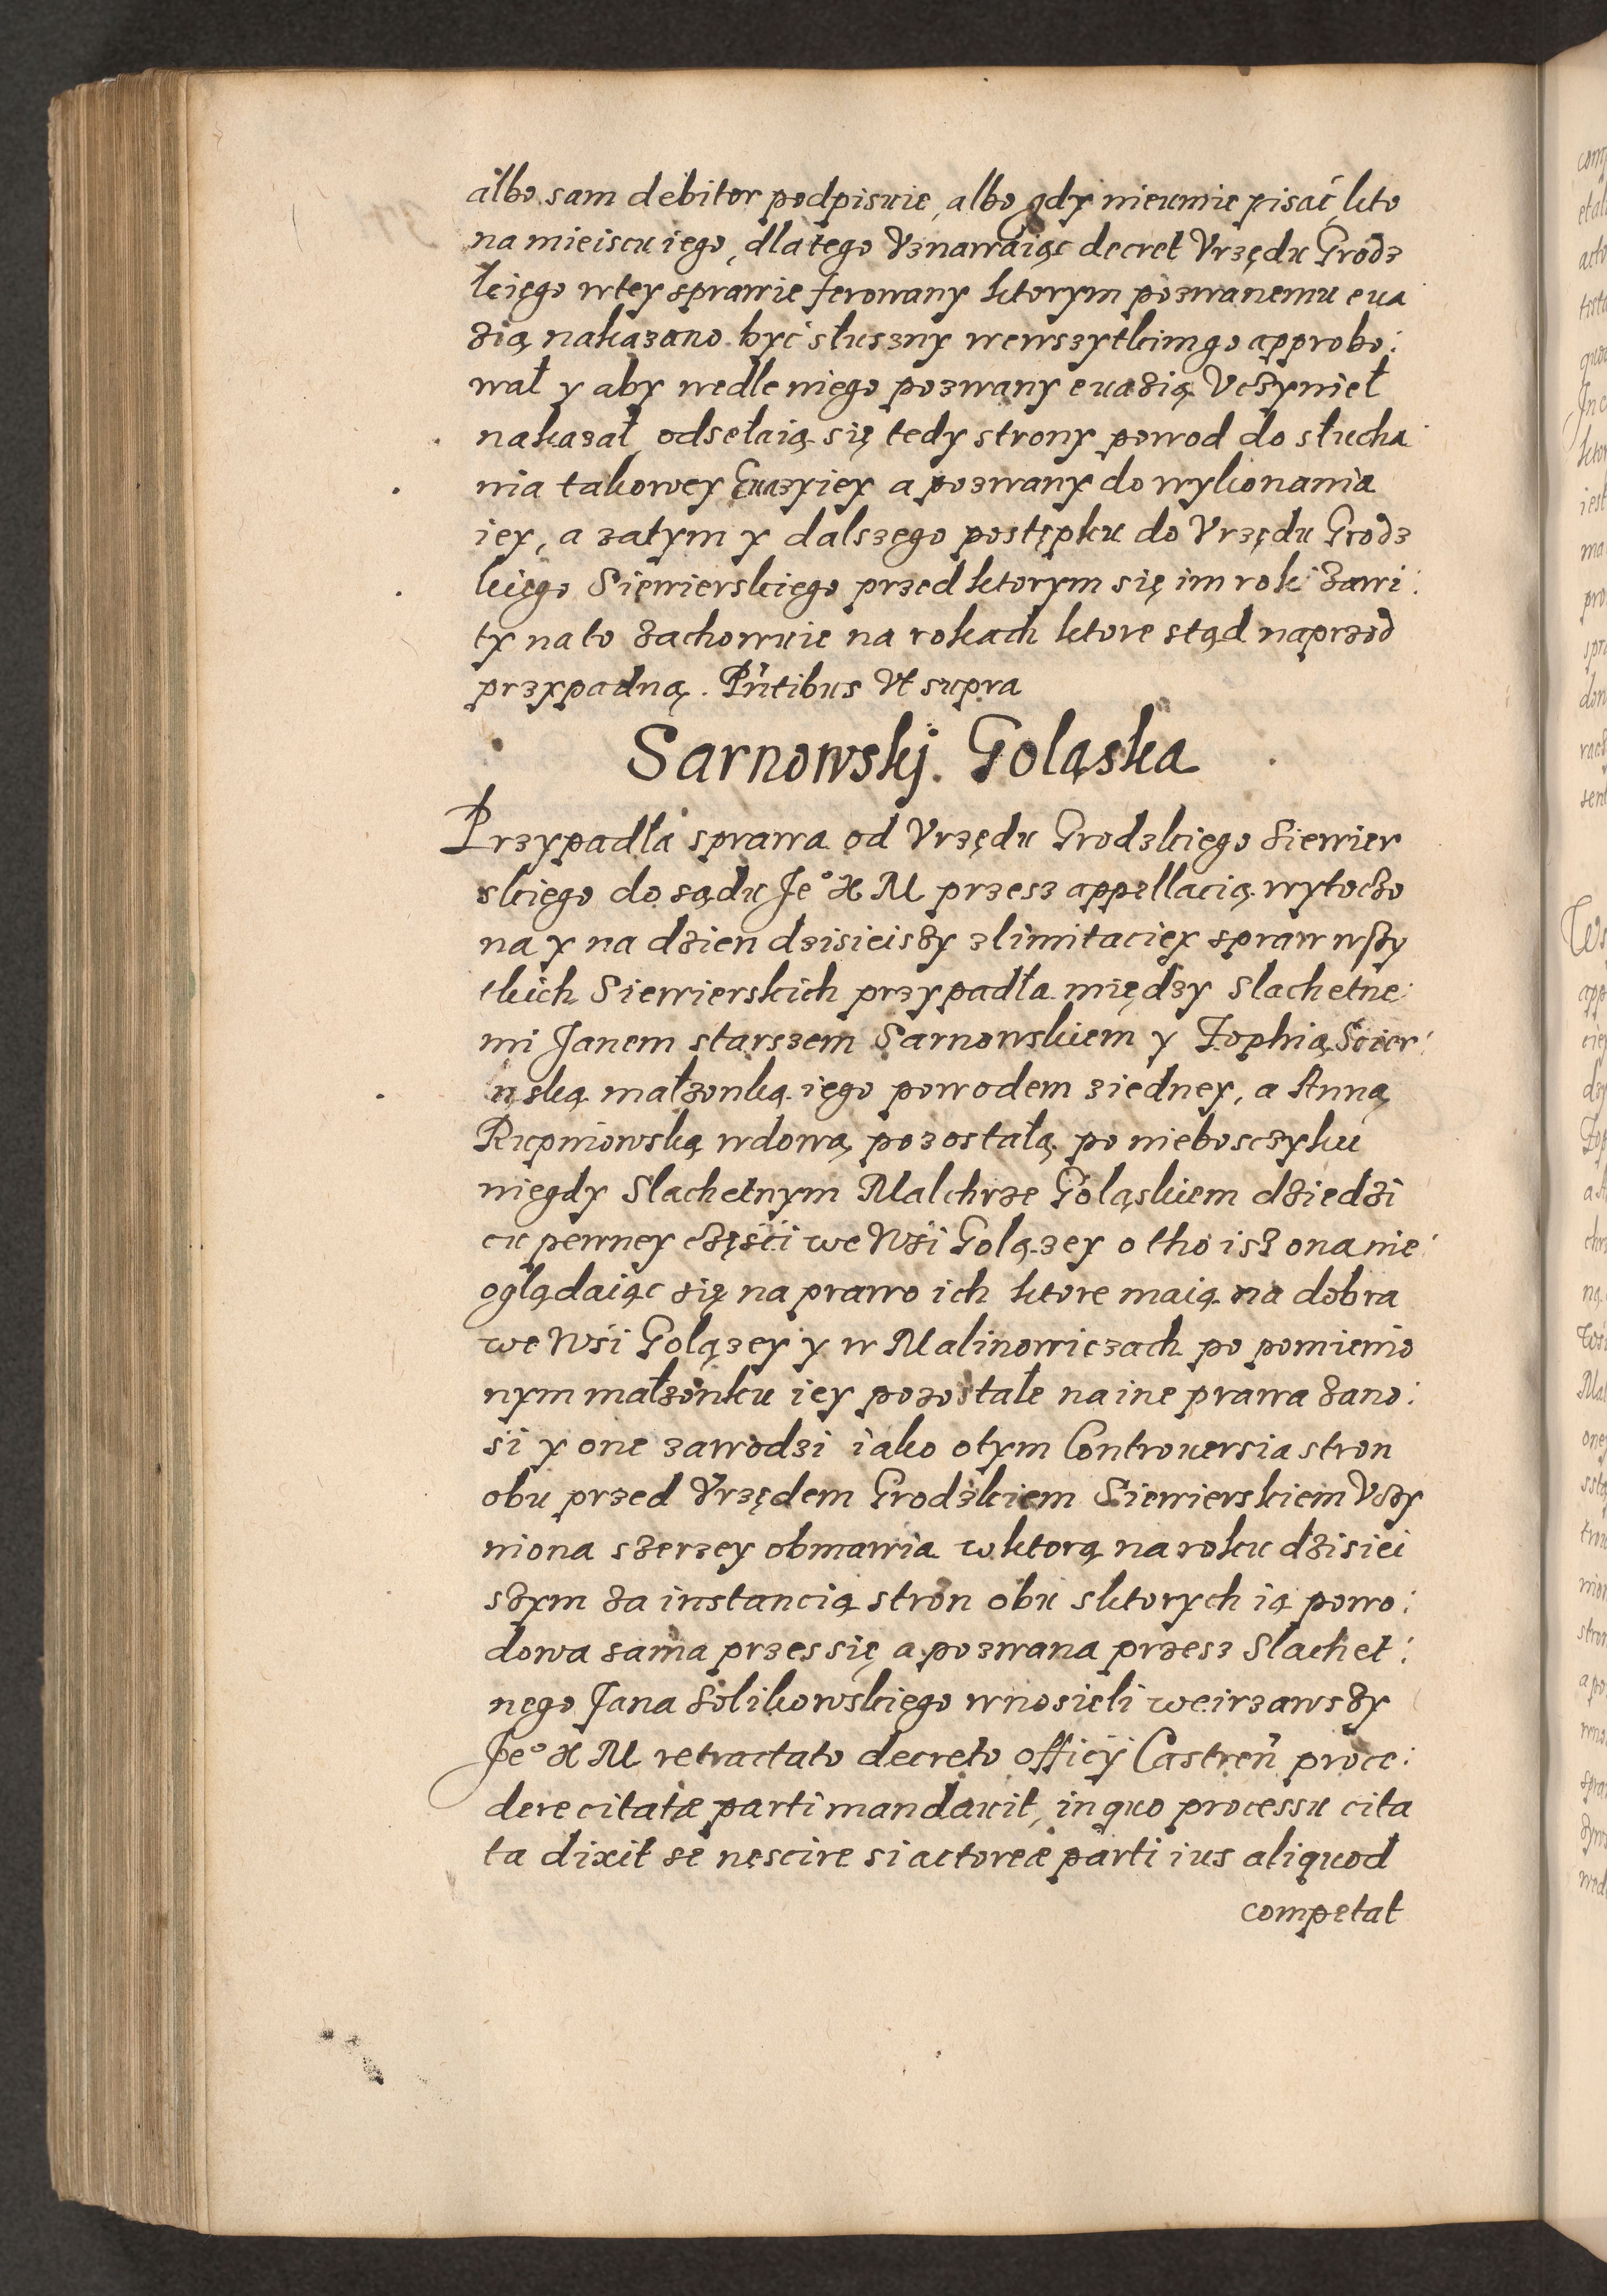 albo sam debitor podpisuie, albo gdy nieumie pisać, kto
na mieiscu iego, dlatego Vznawaiąc decret Vrzędu Grodz
kiego wtey sprawie ferowany ktorym pozwanemu eua
zią nakazano być słuszny wewszytkimgo approbo:
wał y aby wedle niego pozwany euazią Vczynieł
nakazał, odsełaią się tedy strony powod do słucha
nia takowey Euazyiey a pozwany do wykonania
iey, a zatym y dalszego postępku do Vrzędu Grodz
kiego Siewierskiego przed ktorym się im rok zawi:
ty na to zachowuie na rokach ktore stąd naprzod
przypadną. Pñtibus Vt supra
Sarnowskj. Goląska
Przypadła sprawa od Vrzędu Grodzkiego Siewier
skiego do sądu Je° X M przesz appellacią wytoczo
na y na dzien dzisieiszy zlimitaciey spraw wszy
tkich Siewierskich przypadła między Slachetne:
mi Janem starszem Sarnowskiem y Zophią Scier:
nską małzonką iego powodem ziedney, a Anną
Rupniowską wdową pozostałą po nieboszczyku
niegdy Slachetnym Malchrze Goląskiem dziedzi
cu pewney części we Wsi Golązey o tho isz ona nie:
oglądaiąc się na prawo ich ktore maią na dobra
we Wsi Golązey y w Malinowiczach po pomienio
nym małzonku iey pozostałe na ine prawa zano:
si y one zawodzi iako otym Controuersia stron
obu przed Vrzędem Grodzkiem Siewierskiem Vczy
niona szerzey obmawia w ktorą na roku dzisiei
szym za instancią stron obu sktorych ią powo:
dowa sama przes się a pozwana przesz Slachet:
nego Jana Solikowskiego wnosieli weirzawszy
Je° X M retractato decreto officij Castreñ proce:
dere citatæ parti mandauit, in quo processu cita
ta dixit se nescire si actoreæ parti ius aliquod
competat